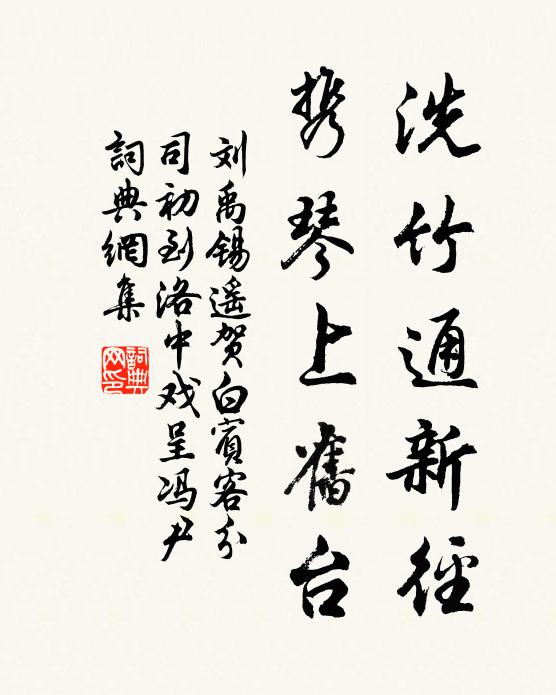 洗竹通新径
携琴上舊台
刘禹锡遥贺白賓客分
司初到洛中戏呈冯尹
詞典網集
詞典
网印